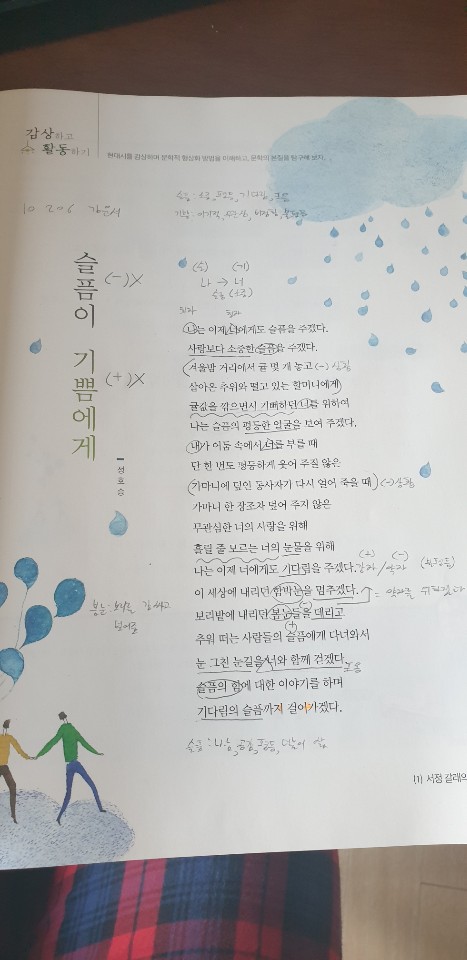 감상하고
활동하기
현대시를 감상하며 문학적 형상화 방법을 이해하고, 문학의 본질을 탐구해 보자.
슬픔 : 소중, 평등, 기다림, 포용
기쁨 : 이기적,
(슬) (기)
나 → 너
슬픔 (소중)
화자 청자
슬픔이 (-)X
기쁨에게 (+)X
정호승
나는 이제 너에게도 슬픔을 주겠다.
사랑보다 소중한 슬픔을 주겠다.
겨울밤 거리에서 귤 몇 개 놓고 (-) 상황
살아온 추위와 떨고 있는 할머니에게
귤값을 깎으면서 기뻐하던 너를 위하여
나는 슬픔의 평등한 얼굴을 보여 주겠다.
내가 어둠 속에서 너를 부를 때
단 한 번도 평등하게 웃어 주질 않은
가마니에 덮인 동사자가 다시 얼어 죽을 때 (-) 상황
가마니 한 장조차 덮어 주지 않은
무관심한 너의 사랑을 위해
흘릴 줄 모르는 너의 눈물을 위해
나는 이제 너에게도 기다림을 주겠다.
(+) (-)
강자 / 약자
이 세상에 내리던 함박눈을 멈추겠다.
보리밭에 내리던 봄눈들을 데리고
(+)
추워 떠는 사람들의 슬픔에게 다녀와서
눈 그친 눈길을 너와 함께 걷겠다.
포용
슬픔의 힘에 대한 이야기를 하며
기다림의 슬픔까지 걸어가겠다.
봄눈 : 보리를
슬픔 : 나눔, 공존, 평등, 더불어 삶
(1) 서정 갈래의